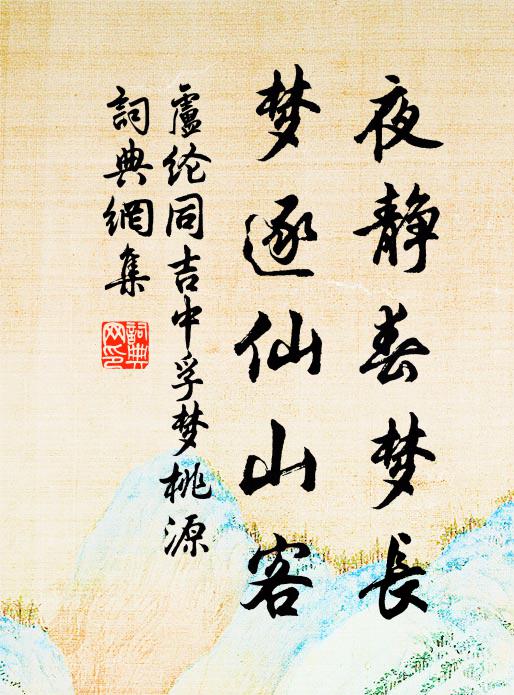 夜静春梦长
梦逐仙山客
盧纶同吉中孚梦桃源
詞典網集
詞典网印